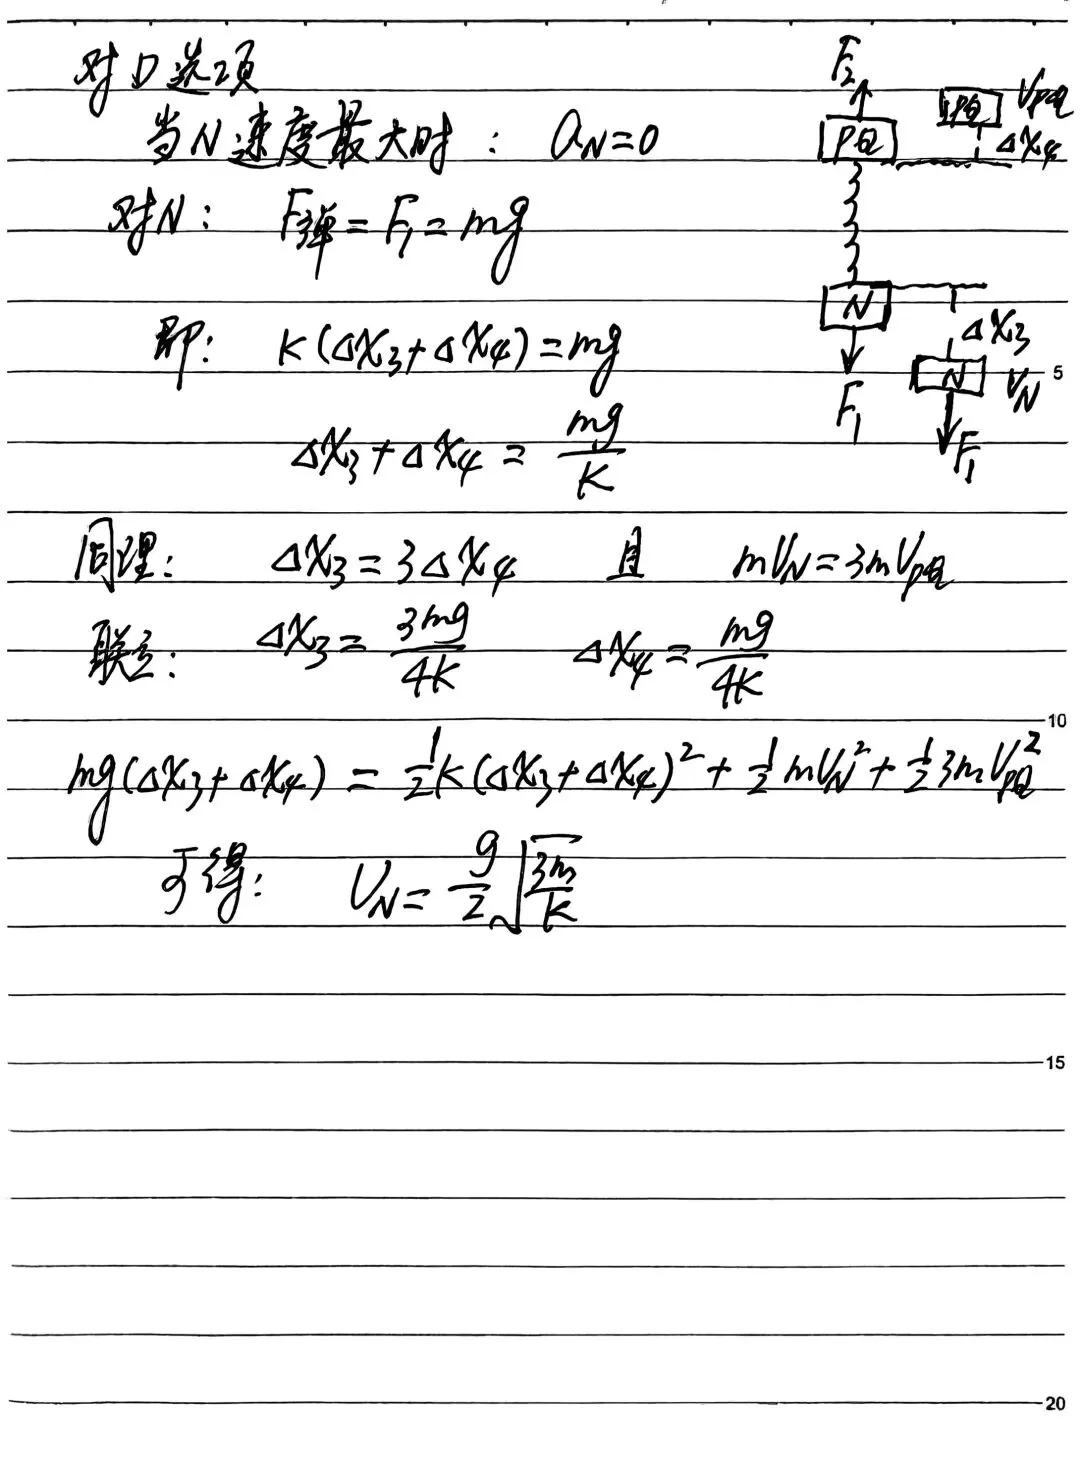 对D选项
当N速度最大时： a_N=0
对N： F弹=F₁=mg
即： K(ΔX₃+ΔX₄)=mg
ΔX₃+ΔX₄=mg/K
同理： ΔX₃=3ΔX₄ 且 mV_N=3mV_PQ
联立： ΔX₃=3mg/4K ΔX₄=mg/4K
mg(ΔX₃+ΔX₄)=½K(ΔX₃+ΔX₄)²+½mV_N²+½3mV_PQ²
可得： V_N=g/2√(3m/K)
F₂
PQ
N
F₁
PQ V_PQ
ΔX₄
ΔX₃
N V_N
F₁
5
10
15
20